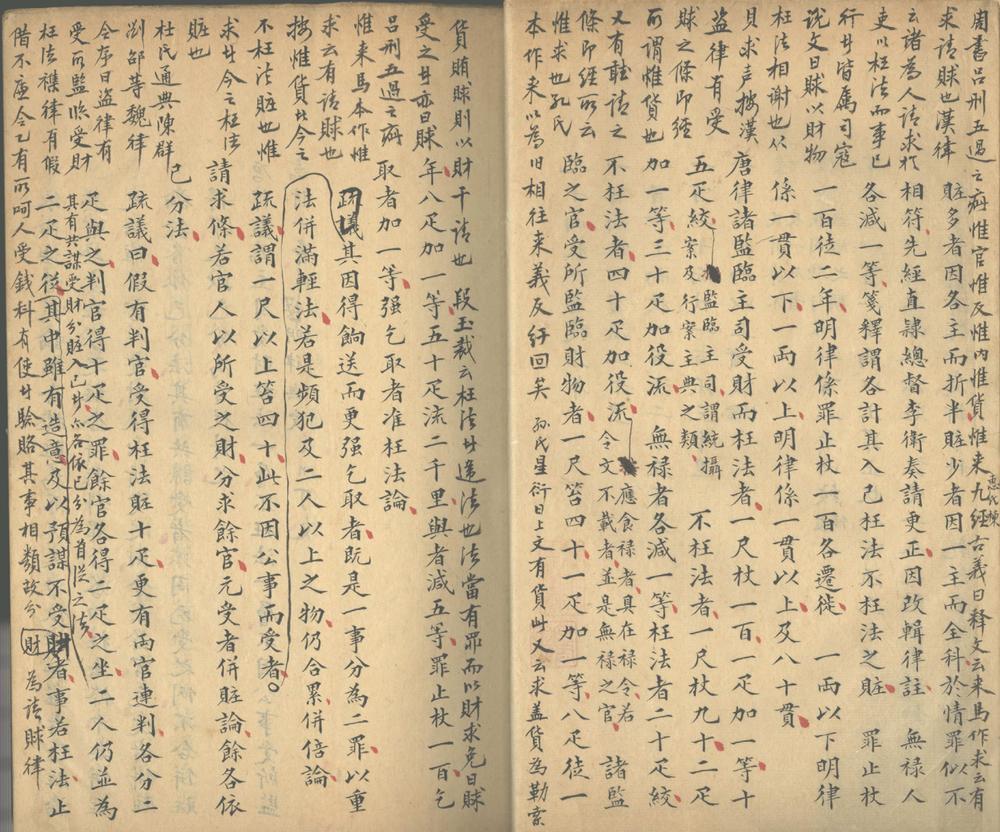 周書呂刑五過之疵惟官惟反惟内惟貨惟来九經古義曰释文云来馬作求云有
惠氏棟
求请賕也漢律
云诸為人请求於
吏以枉法而事已
行廿皆属司寇
说文曰賕以財物
枉法相谢也从
貝求声按漢
盗律有受
賕之條即經
所謂惟貨也
又有聽请之
條即經所云
惟求也孔氏
本作来以為旧相往来義反紆回矣 孫氏星衍曰上文有貨此又云求盖貨為勒索
贓多者因各主而折半贓少者因一主而全科於情罪似不
相符先經直隸總督李衛奏請更正因改輯律註 無禄人
各減一等箋釋謂各計其入己枉法不枉法之贓 罪止杖
一百徒二年明律係罪止杖一百各遷徙 一兩以下明律
係一貫以下一兩以上明律係一貫以上及八十貫
唐律諸監臨主司受財而枉法者一尺杖一百一疋加一等十
五疋絞 監臨主司謂統攝案及行案主典之類 不枉法者一尺杖九十二疋
加一等三十疋加役流 無禄者各減一等枉法者二十疋絞
不枉法者四十疋加役流 應食禄者具在禄令若令文不載者並是無禄之官 諸監
臨之官受所監臨財物者一尺笞四十一疋加一等八疋徒一
貨賄賕則以財干请也 段玉裁云枉法廿违法也法當有罪而以財求免曰賕
受之廿亦曰賕
呂刑五過之疵
惟来馬本作惟
求云有请賕也
按惟貨廿今之
不枉法赃也惟
求廿今之枉法
赃也
杜氏通典陳群
刘邵等魏律
令序曰盗律有
受所監临受財
枉法襍律有假
借不廉令乙有所呵人受錢科有使廿驗賂其事相類故分 財 為请賕律
年八疋加一等五十疋流二千里與者減五等罪止杖一百乞
取者加一等强乞取者准枉法論
疏議其因得餉送而更强乞取者既是一事分為二罪以重
法併滿輕法若是頻犯及二人以上之物仍合累併倍論
疏議謂一尺以上笞四十此不因公事而受者
請求條若官人以所受之財分求餘官元受者併贓論餘各依
己分法
疏議曰假有判官受得枉法贓十疋更有兩官連判各分二
疋與之判官得十疋之罪餘官各得二疋之坐二人仍並為
其有共謀受財分赃入己廿亦各依己分為首從之法
二疋之從其中雖有造意及以預謀不受財者事若枉法止